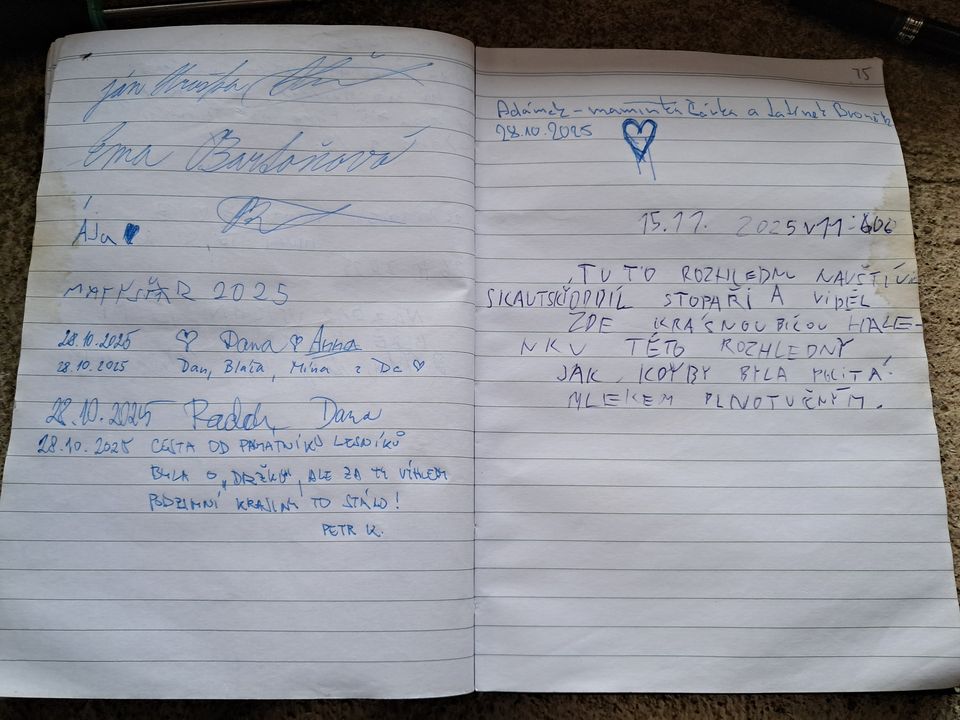 Ján
Ema
Ája
2025
28.10.2025 Dana Anna
28.10.2025 Dan, Blaťa, Míňa z
28.10.2025 Radek, Dana
28.10.2025 CESTA OD PAMÁTNÍKU LESNÍKŮ
BYLA O „DRŽKU“, ALE ZA TY VÍHLEDY
PODZIMNÍ KRAJINY TO STÁLO!
PETR K.
75
Adámek - maminka a
28.10.2025
15.11. 2025 v 11
TUTO ROZHLEDNU NAVŠTÍVIL
SKAUTSKÍ ODDÍL STOPAŘI A VIDĚL
ZDE KRÁSNOU BÍLOU HALE-
NKU TÉTO ROZHLEDNY
JAK KDYBY BYLA POLITÁ
MLÉKEM PLNOTUČNÝM.